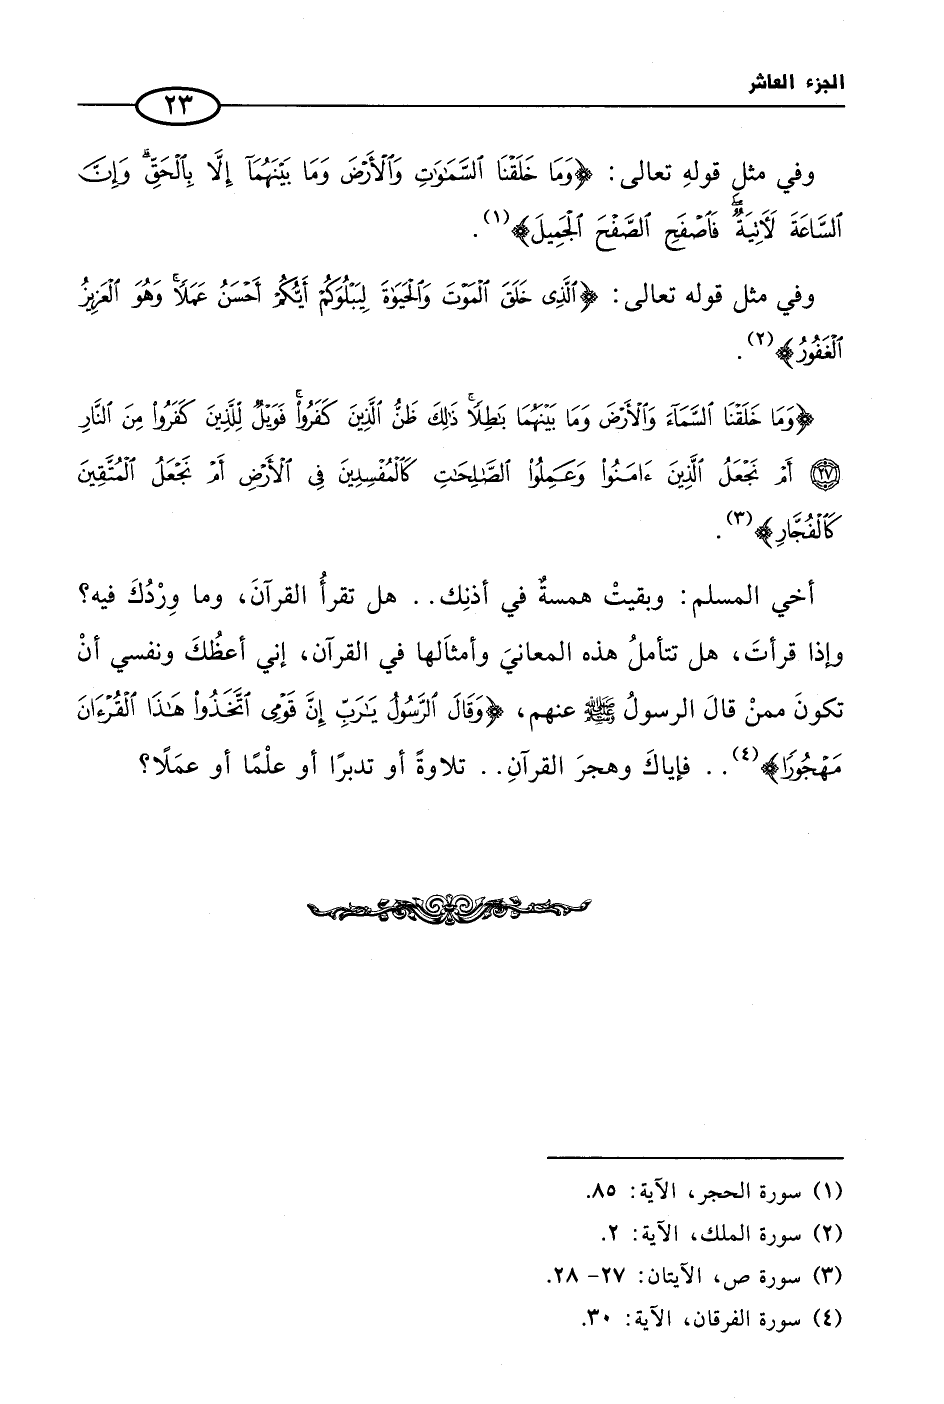 الجزء العاشر
٢٣
وفي مثلِ قولهِ تعالى: ﴿وَمَا خَلَقْنَا ٱلسَّمَٰوَٰتِ وَٱلْأَرْضَ وَمَا بَيْنَهُمَآ إِلَّا بِٱلْحَقِّ ۗ وَإِنَّ
ٱلسَّاعَةَ لَأٓتِيَةٌ ۖ فَٱصْفَحِ ٱلصَّفْحَ ٱلْجَمِيلَ﴾(١).
وفي مثل قوله تعالى: ﴿ٱلَّذِى خَلَقَ ٱلْمَوْتَ وَٱلْحَيَوٰةَ لِيَبْلُوَكُمْ أَيُّكُمْ أَحْسَنُ عَمَلًا ۚ وَهُوَ ٱلْعَزِيزُ
ٱلْغَفُورُ﴾(٢).
﴿وَمَا خَلَقْنَا ٱلسَّمَآءَ وَٱلْأَرْضَ وَمَا بَيْنَهُمَا بَٰطِلًا ۚ ذَٰلِكَ ظَنُّ ٱلَّذِينَ كَفَرُوا۟ ۚ فَوَيْلٌ لِّلَّذِينَ كَفَرُوا۟ مِنَ ٱلنَّارِ
(٢٧) أَمْ نَجْعَلُ ٱلَّذِينَ ءَامَنُوا۟ وَعَمِلُوا۟ ٱلصَّٰلِحَٰتِ كَٱلْمُفْسِدِينَ فِى ٱلْأَرْضِ أَمْ نَجْعَلُ ٱلْمُتَّقِينَ
كَٱلْفُجَّارِ﴾(٣).
أخي المسلم: وبقيتْ همسةٌ في أذنِك.. هل تقرأُ القرآنَ، وما وِرْدُكَ فيه؟
وإذا قرأتَ، هل تتأملُ هذه المعانيَ وأمثاَلها في القرآن، إني أعظُكَ ونفسي أنْ
تكونَ ممنْ قالَ الرسولُ ﷺ عنهم، ﴿وَقَالَ ٱلرَّسُولُ يَٰرَبِّ إِنَّ قَوْمِى ٱتَّخَذُوا۟ هَٰذَا ٱلْقُرْءَانَ
مَهْجُورًا﴾(٤).. فإياكَ وهجرَ القرآنِ.. تلاوةً أو تدبرًا أو علْمًا أو عمَلًا؟
(١) سورة الحجر، الآية: ٨٥.
(٢) سورة الملك، الآية: ٢.
(٣) سورة ص، الآيتان: ٢٧- ٢٨.
(٤) سورة الفرقان، الآية: ٣٠.